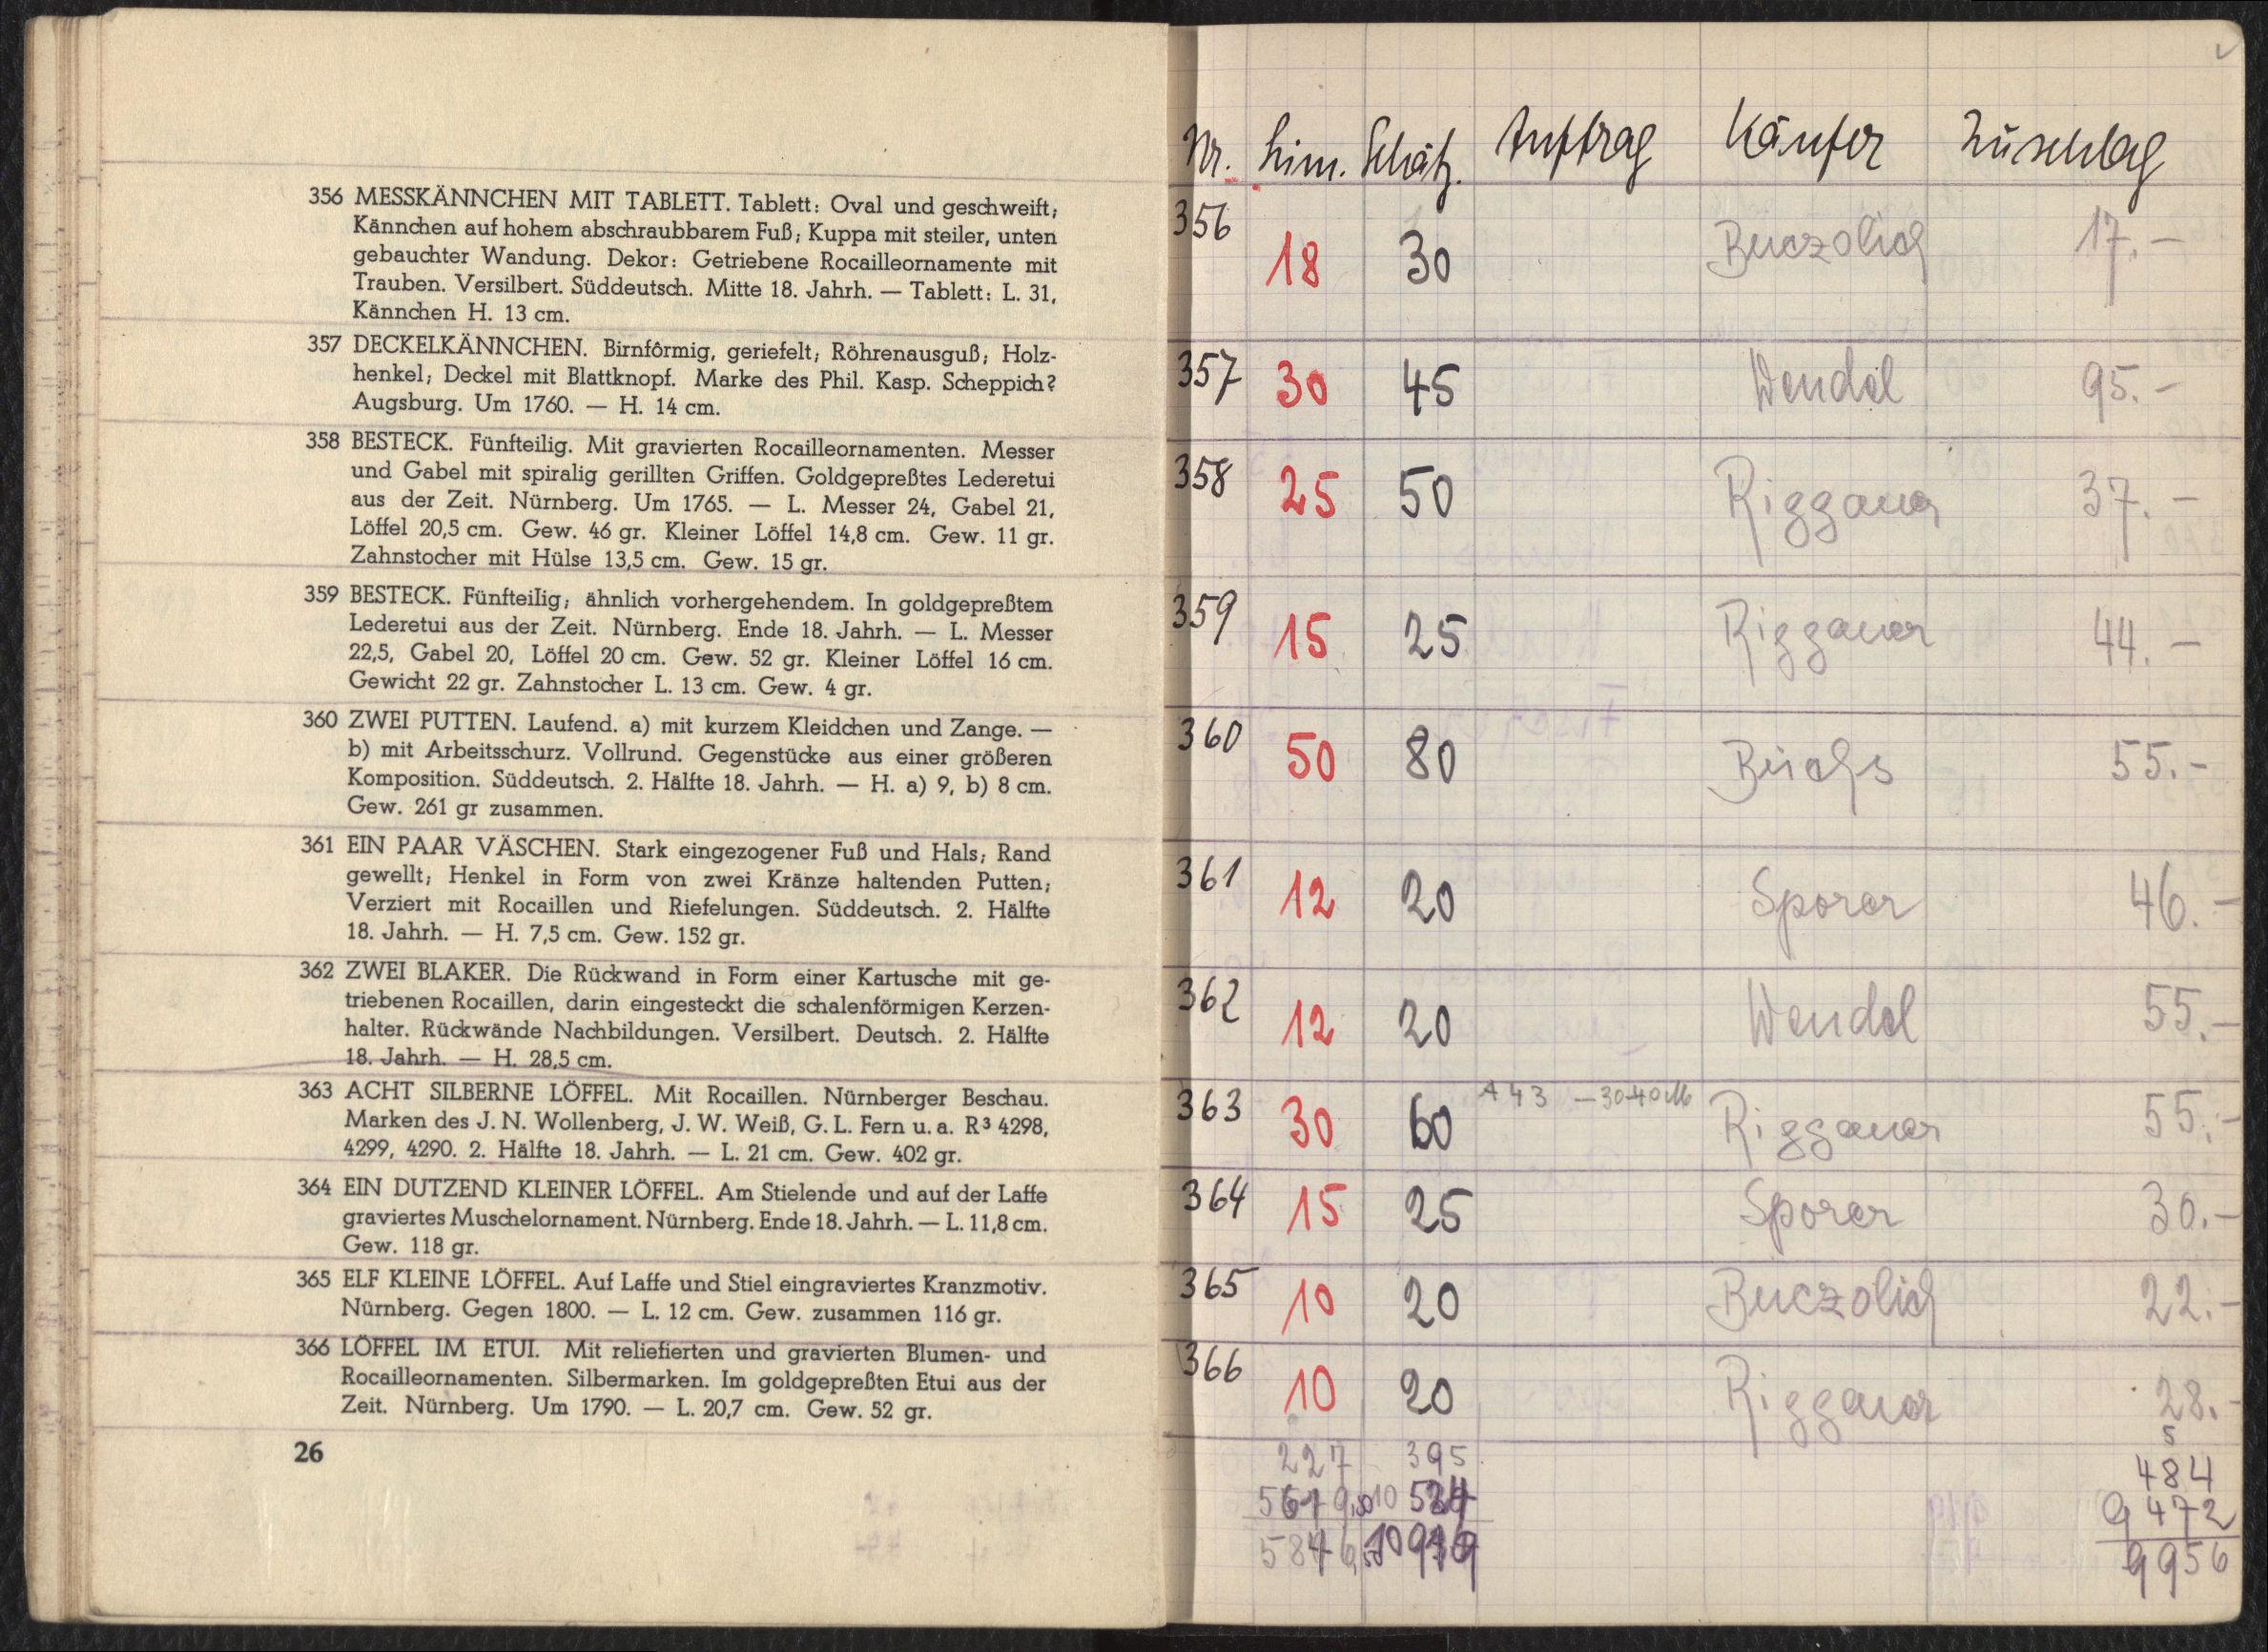 356 MESSKÄNNCHEN MIT TABLETT. Tablett: Oval und geschweift;
Kännchen auf hohem abschraubbarem Fuß; Kuppa mit steiler, unten
gebauchter Wandung. Dekor: Getriebene Rocailleornamente mit
Trauben. Versilbert. Süddeutsch. Mitte 18. Jahrh. — Tablett: L. 31,
Kännchen H. 13 cm.
357 DECKELKÄNNCHEN. Birnfôrmig, geriefelt; Röhrenausguß; Holz-
henkel; Deckel mit Blattknopf. Marke des Phil. Kasp. Scheppich?
Augsburg. Um 1760. — H. 14 cm.
358 BESTECK. Fünfteilig. Mit gravierten Rocailleornamenten. Messer
und Gabel mit spiralig gerillten Griffen. Goldgepreßtes Lederetui
aus der Zeit. Nürnberg. Um 1765. — L. Messer 24, Gabel 21,
Löffel 20,5 cm. Gew. 46 gr. Kleiner Löffel 14,8 cm. Gew. 11 gr.
Zahnstocher mit Hülse 13,5 cm. Gew. 15 gr.
359 BESTECK. Fünfteilig; ähnlich vorhergehendem. In goldgepreßtem
Lederetui aus der Zeit. Nürnberg. Ende 18. Jahrh. — L. Messer
22,5, Gabel 20, Löffel 20 cm. Gew. 52 gr. Kleiner Löffel 16 cm.
Gewicht 22 gr. Zahnstocher L. 13 cm. Gew. 4 gr.
360 ZWEI PUTTEN. Laufend. a) mit kurzem Kleidchen und Zange. —
b) mit Arbeitsschurz. Vollrund. Gegenstücke aus einer größeren
Komposition. Süddeutsch. 2. Hälfte 18. Jahrh. — H. a) 9, b) 8 cm.
Gew. 261 gr zusammen.
361 EIN PAAR VÄSCHEN. Stark eingezogener Fuß und Hals; Rand
gewellt; Henkel in Form von zwei Kränze haltenden Putten;
Verziert mit Rocaillen und Riefelungen. Süddeutsch. 2. Hälfte
18. Jahrh. — H. 7,5 cm. Gew. 152 gr.
362 ZWEI BLAKER. Die Rückwand in Form einer Kartusche mit ge-
triebenen Rocaillen, darin eingesteckt die schalenförmigen Kerzen-
halter. Rückwände Nachbildungen. Versilbert. Deutsch. 2. Hälfte
18. Jahrh. — H. 28,5 cm.
363 ACHT SILBERNE LÖFFEL. Mit Rocaillen. Nürnberger Beschau.
Marken des J. N. Wollenberg, J. W. Weiß, G. L. Fern u. a. R³ 4298,
4299, 4290. 2. Hälfte 18. Jahrh. — L. 21 cm. Gew. 402 gr.
364 EIN DUTZEND KLEINER LÖFFEL. Am Stielende und auf der Laffe
graviertes Muschelornament. Nürnberg. Ende 18. Jahrh. — L. 11,8 cm.
Gew. 118 gr.
365 ELF KLEINE LÖFFEL. Auf Laffe und Stiel eingraviertes Kranzmotiv.
Nürnberg. Gegen 1800. — L. 12 cm. Gew. zusammen 116 gr.
366 LÖFFEL IM ETUI. Mit reliefierten und gravierten Blumen- und
Rocailleornamenten. Silbermarken. Im goldgepreßten Etui aus der
Zeit. Nürnberg. Um 1790. — L. 20,7 cm. Gew. 52 gr.
26
Nr. Lim. Schätz. Auftrag Käufer Zuschlag
356 18 30 Buczolich 17.—
357 30 45 Wendel 95.—
358 25 50 Riggauer 37.—
359 15 25 Riggauer 44.—
360 50 80 Buchs 55.—
361 12 20 Sporer 46.—
362 12 20 Wendel 55.—
363 30 60 A 43 —30-40 M Riggauer 55.—
364 15 25 Sporer 30.—
365 10 20 Buczolich 22.—
366 10 20 Riggauer 28.—
5
227 395 484
9 472
9956